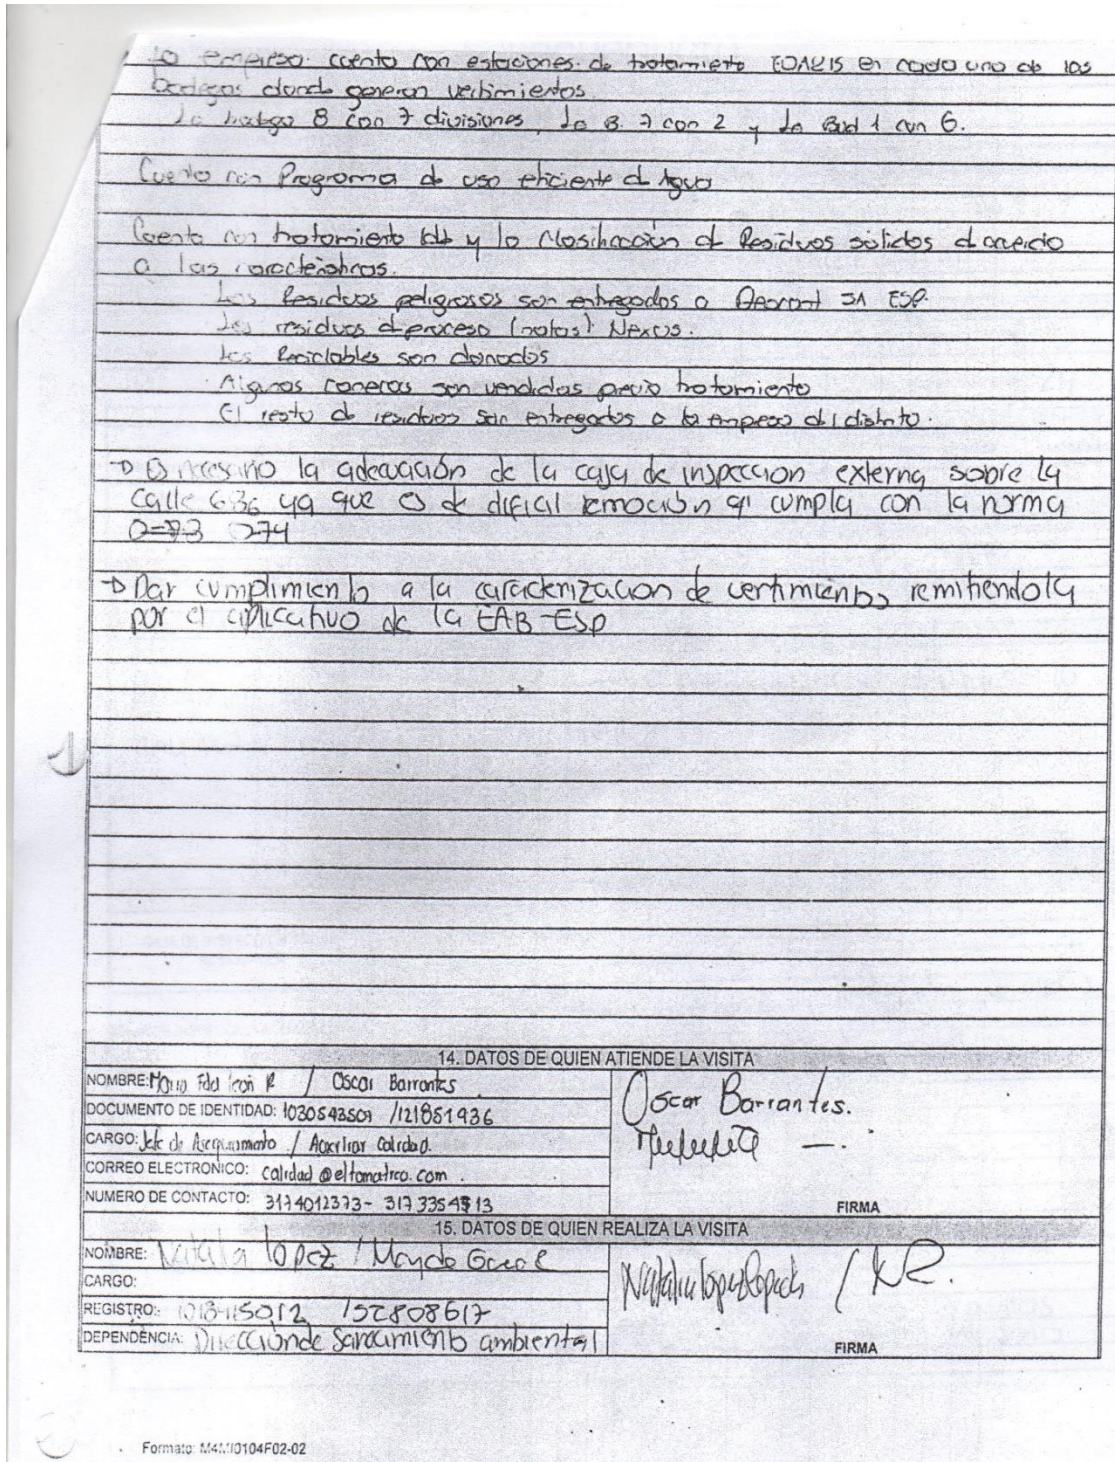 La empresa cuenta con estaciones de tratamiento en cada una de las
bodegas donde generan vertimientos.
La bodega 8 con 7 divisiones, La B. 7 con 2 y La Bod 1 con 6.
Cuenta con Programa de uso eficiente de Agua
Cuenta con tratamiento y la clasificación de Residuos sólidos de acuerdo
a las características.
Los Residuos peligrosos son entregados a SA ESP.
Los residuos de proceso (natas) Nexus.
Los Reciclables son donados
Algunas canecas son vendidas previo tratamiento
El resto de residuos son entregados a la empresa del distrito.
→ Es necesario la adecuación de la caja de inspección externa sobre la
calle ya que es de dificil remoción q cumpla con la norma
274
→ Dar cumplimiento a la caracterización de vertimientos remitiendola
por el aplicativo de la EAB-ESP
14. DATOS DE QUIEN ATIENDE LA VISITA
NOMBRE: León R / Oscar Barrantes
Oscar Barrantes.
DOCUMENTO DE IDENTIDAD: /121851936
CARGO: Jefe de / Auxiliar Calidad.
CORREO ELECTRONICO:
NUMERO DE CONTACTO: 3174012373 -
FIRMA
15. DATOS DE QUIEN REALIZA LA VISITA
NOMBRE: Natalia López /
CARGO:
REGISTRO: /52808617
DEPENDENCIA: Dirección de Saneamiento ambiental
FIRMA
Formato: M4MI0104F02-02